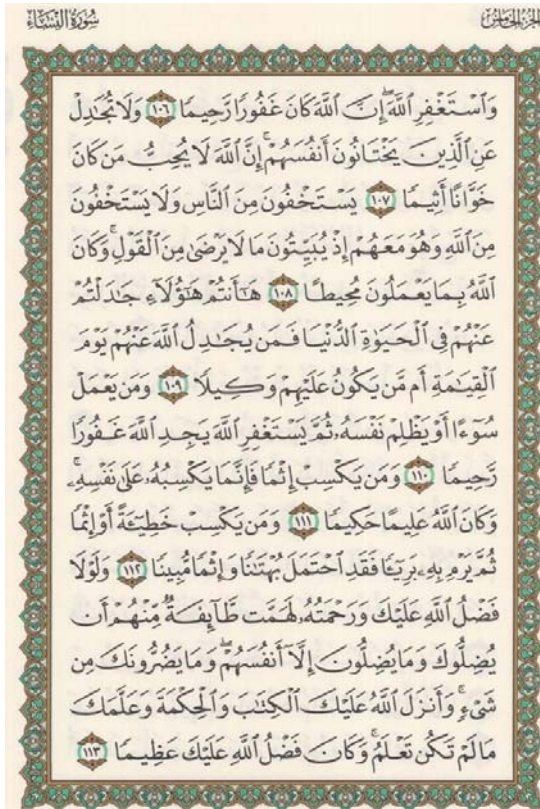 الجزء الخامس
سورة النساء
وَٱسْتَغْفِرِ ٱللَّهَ ۖ إِنَّ ٱللَّهَ كَانَ غَفُورًا رَّحِيمًا ١٠٦ وَلَا تُجَٰدِلْ
عَنِ ٱلَّذِينَ يَخْتَانُونَ أَنفُسَهُمْ ۚ إِنَّ ٱللَّهَ لَا يُحِبُّ مَن كَانَ
خَوَّانًا أَثِيمًا ١٠٧ يَسْتَخْفُونَ مِنَ ٱلنَّاسِ وَلَا يَسْتَخْفُونَ
مِنَ ٱللَّهِ وَهُوَ مَعَهُمْ إِذْ يُبَيِّتُونَ مَا لَا يَرْضَىٰ مِنَ ٱلْقَوْلِ ۚ وَكَانَ
ٱللَّهُ بِمَا يَعْمَلُونَ مُحِيطًا ١٠٨ هَٰٓأَنتُمْ هَٰٓؤُلَآءِ جَٰدَلْتُمْ
عَنْهُمْ فِى ٱلْحَيَوٰةِ ٱلدُّنْيَا فَمَن يُجَٰدِلُ ٱللَّهَ عَنْهُمْ يَوْمَ
ٱلْقِيَٰمَةِ أَم مَّن يَكُونُ عَلَيْهِمْ وَكِيلًا ١٠٩ وَمَن يَعْمَلْ
سُوٓءًا أَوْ يَظْلِمْ نَفْسَهُۥ ثُمَّ يَسْتَغْفِرِ ٱللَّهَ يَجِدِ ٱللَّهَ غَفُورًا
رَّحِيمًا ١١٠ وَمَن يَكْسِبْ إِثْمًا فَإِنَّمَا يَكْسِبُهُۥ عَلَىٰ نَفْسِهِۦ ۚ
وَكَانَ ٱللَّهُ عَلِيمًا حَكِيمًا ١١١ وَمَن يَكْسِبْ خَطِيٓـَٔةً أَوْ إِثْمًا
ثُمَّ يَرْمِ بِهِۦ بَرِيٓـًٔا فَقَدِ ٱحْتَمَلَ بُهْتَٰنًا وَإِثْمًا مُّبِينًا ١١٢ وَلَوْلَا
فَضْلُ ٱللَّهِ عَلَيْكَ وَرَحْمَتُهُۥ لَهَمَّت طَّآئِفَةٌ مِّنْهُمْ أَن
يُضِلُّوكَ وَمَا يُضِلُّونَ إِلَّآ أَنفُسَهُمْ ۖ وَمَا يَضُرُّونَكَ مِن
شَىْءٍ ۚ وَأَنزَلَ ٱللَّهُ عَلَيْكَ ٱلْكِتَٰبَ وَٱلْحِكْمَةَ وَعَلَّمَكَ
مَا لَمْ تَكُن تَعْلَمُ ۚ وَكَانَ فَضْلُ ٱللَّهِ عَلَيْكَ عَظِيمًا ١١٣